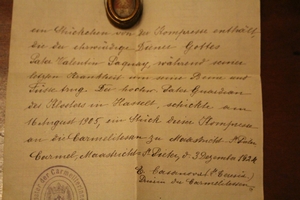 ein Stückchen von der Kompresse enthält,
die der ehrwürdige Diener Gottes
Pater Valentin Paquay, während seiner
letzten Krankheit um seine Beine und
Füsse trug. Der hochw. Pater Guardian
des Klosters in Hasselt, schickte am
1905, ein Stück dieser Kompresse
an die Carmelitessen zu Maastricht
Carmel, Maastricht, 3 Dezember 1924